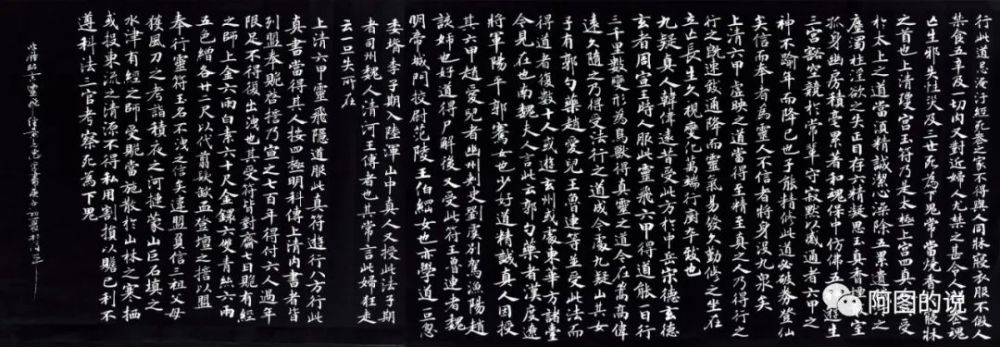 行此道忌淹汙經死喪之家不得與人同牀寢衣服不假人
禁食五辛及一切肉又對近婦人尤禁之甚令人神喪魂
亡生邪失性災及三世死為下鬼常當燒香於寢牀
之首也上清瓊宮玉符乃是太極上宮四真人所受
於太上之道當須精誠潔心澡除五累遺穢汙之
塵濁杜淫欲之失正目存六精凝思玉真香煙散室
孤身幽房積毫累著和魂保中仿佛五神遊生
三宮豁空競於常輩守寂默以感通者六甲之
神不踰年而降已也子能精修此道必破券登仙
矣信而奉者為靈人不信者將身沒九泉矣
上清六甲虛映之道當得至精至真之人乃得行之
行之既速致通降而靈氣易發久勤修之坐在
立亡長生久視變化萬端行廚卒致也
九疑真人韓偉遠昔受此方於中岳宗德玄德
玄者周宣王時人服此靈飛六甲得道能一日行
三千里數變形為鳥獸得真靈之道今在嵩高偉
遠久隨之乃得受法行之道成今處九疑山其女
子有郭勺藥趙愛兒王魯連等並受此法而
得道者復數十人或遊玄州或處東華方諸臺
今見在也南嶽魏夫人言此云郭勺藥者漢度遼
將軍陽平郭騫女也少好道精誠真人因授
其六甲趙愛兒者幽州刺史劉虞別駕漁陽趙
該姊也好道得尸解後又受此符王魯連者魏
明帝城門校尉范陵王伯綱女也亦學道一旦忽
委壻李子期入陸渾山中真人又授此法子期
者司州魏人清河王傳者也其常言此婦狂走
云一旦失所在
上清六甲靈飛隱道服此真符遊行八方行此
真書當得其人按四極明科傳上清內書者皆
列盟奉賝啟誓乃宣之七百年得付六人過年
限足不得復出洩也其受符皆對齋七日賝有經
之師上金六兩白素六十尺金鐶六雙青絲六兩
五色繒各廿二尺以代翦髮歃血登壇之誓以盟
奉行靈符玉名不洩之信矣違盟負信三祖父母
獲風刀之考詣積夜之河運蒙山巨石填之
水津有經之師受賝當施散於山林之寒栖
或投東流之清源不得私用割損以贍己利不
遵科法三官考察死為下鬼
阿图的说